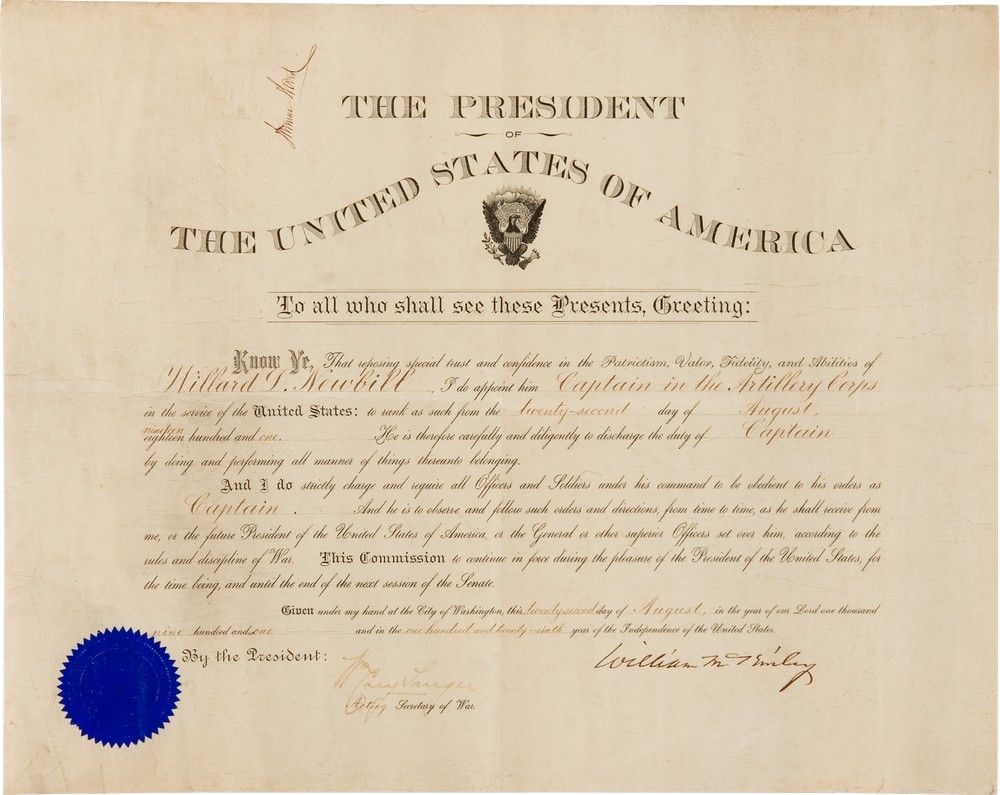 THE PRESIDENT
OF
THE UNITED STATES OF AMERICA
To all who shall see these Presents, Greeting:
Know Ye, That reposing special trust and confidence in the Patriotism, Valor, Fidelity, and Abilities of
Willard D. Newbill, I do appoint him Captain in the Artillery Corps
in the service of the United States: to rank as such from the twenty-second day of August,
nineteen
eighteen hundred and one. He is therefore carefully and diligently to discharge the duty of Captain
by doing and performing all manner of things thereunto belonging.
And I do strictly charge and require all Officers and Soldiers under his command to be obedient to his orders as
Captain. And he is to observe and follow such orders and directions, from time to time, as he shall receive from
me, or the future President of the United States of America, or the General or other superior Officers set over him, according to the
rules and discipline of War. This Commission to continue in force during the pleasure of the President of the United States, for
the time being, and until the end of the next session of the Senate.
Given under my hand at the City of Washington, this twenty-second day of August, in the year of our Lord one thousand
nine hundred and one and in the one hundred and twenty-sixth year of the Independence of the United States.
By the President: William McKinley
Wm Cary Sanger
Acting Secretary of War.